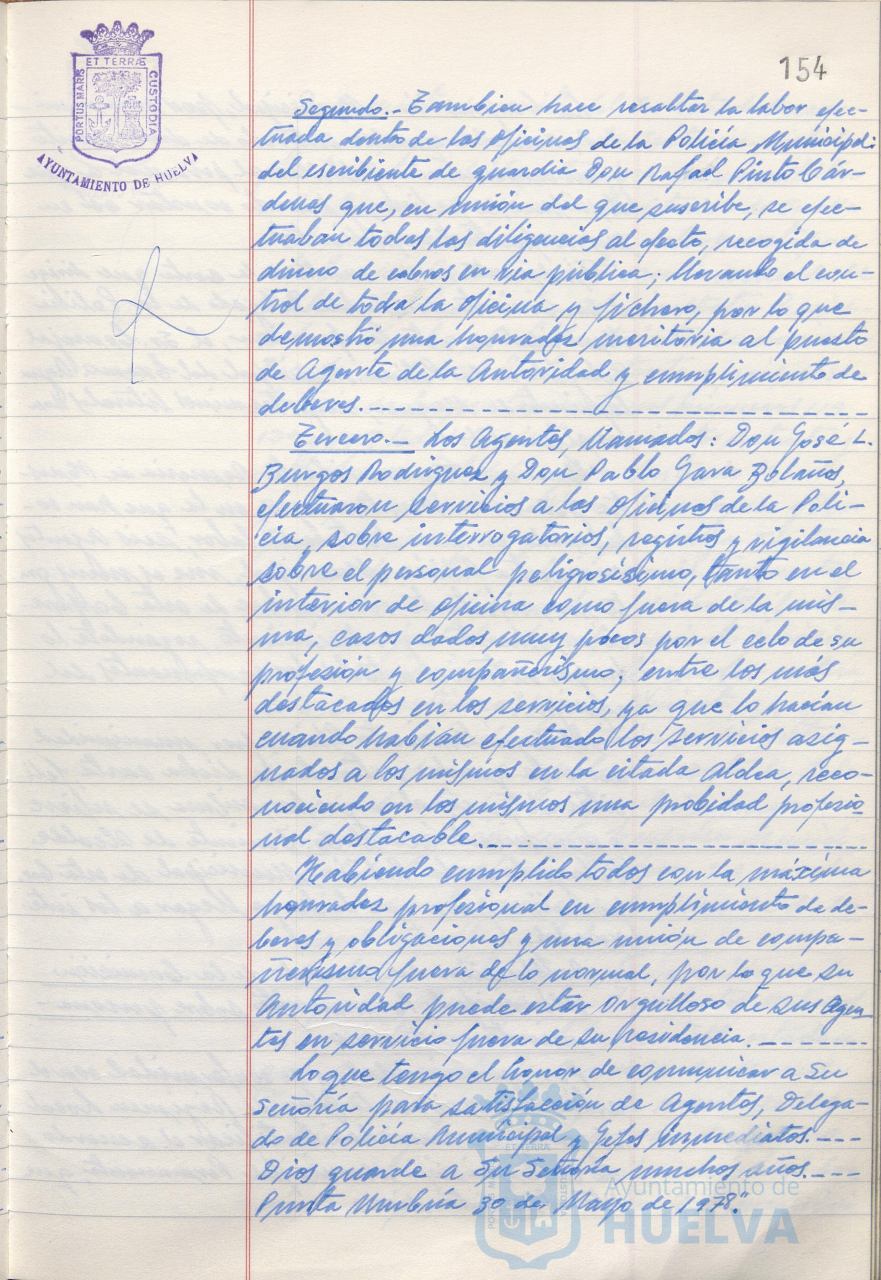 154
PORTUS MARIS ET TERRÆ CUSTODIA
AYUNTAMIENTO DE HUELVA
Segundo.- Tambien hace resaltar la labor efec-
tuada dentro de las oficinas de la Policía Municipal
del escribiente de guardia Don Rafael Pinto Cár-
denas que, en unión del que suscribe, se efec-
tuaban todas las diligencias al efecto, recogida de
dinero de cobros en via pública; llevando el con-
trol de toda la oficina y fichero, por lo que
demostró una honradez meritoria al puesto
de Agente de la Autoridad y cumplimiento de
deberes.
Tercero.- Los Agentes, llamados: Don José L.
Burgos Rodriguez y Don Pablo Gara Bolaños,
efectuaron servicios a las oficinas de la Poli-
cia, sobre interrogatorios, registros y vigilancia
sobre el personal peligrosísimo, tanto en el
interior de oficina como fuera de la mis-
ma, casos dados muy pocos por el celo de su
profesión y compañerismo, entre los más
destacados en los servicios, ya que lo hacían
cuando habían efectuado los servicios asig-
nados a los mismos en la citada Aldea, reco-
nociendo en los mismos una probidad profesio-
nal destacable.
Habiendo cumplido todos con la máxima
honradez profesional en cumplimiento de de-
beres y obligaciones y una unión de compa-
ñerismo fuera de lo normal, por lo que su
Autoridad puede estar orgulloso de sus Agen-
tes en servicio fuera de su residencia.
Lo que tengo el honor de comunicar a Su
Señoría para satisfacción de Agentes, Delega-
do de Policía Municipal y Gefes inmediatos.
Dios guarde a Su Señoría muchos años.
Punta Umbría 30 de Mayo de 1978."
Ayuntamiento de
HUELVA